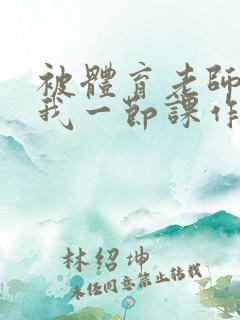 被體育老師
我一節課作
林紹坤
未經同意禁止轉載